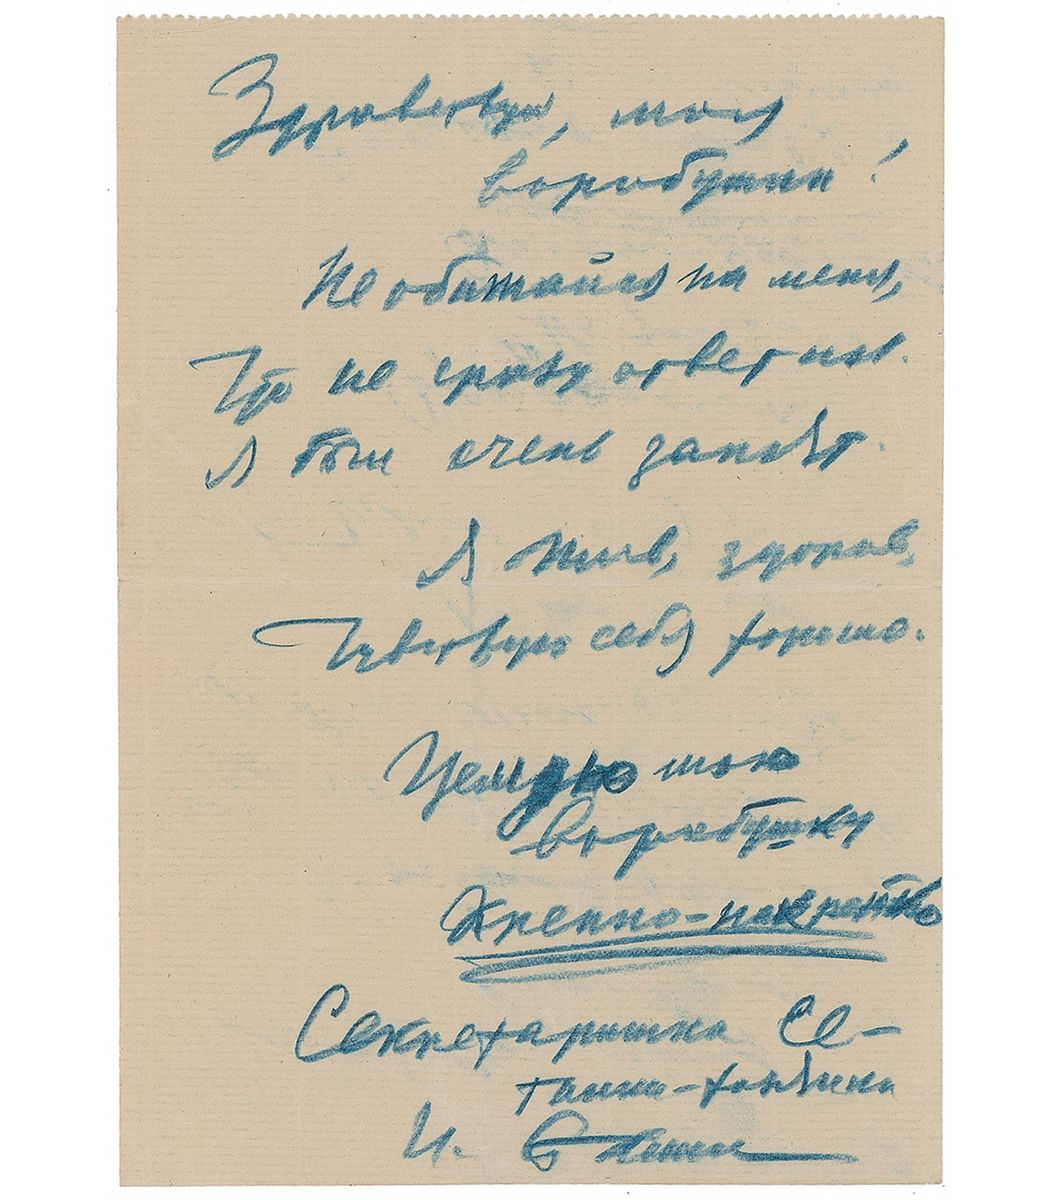 Здравствуй, моя
воробушка!
Не обижайся на меня,
что не сразу ответил.
Я был очень занят.
Я жив, здоров,
чувствую себя хорошо.
Целую мою
воробушку
крепко-накрепко
Секретаришка Се-
танки-хозяйки
И. Сталин